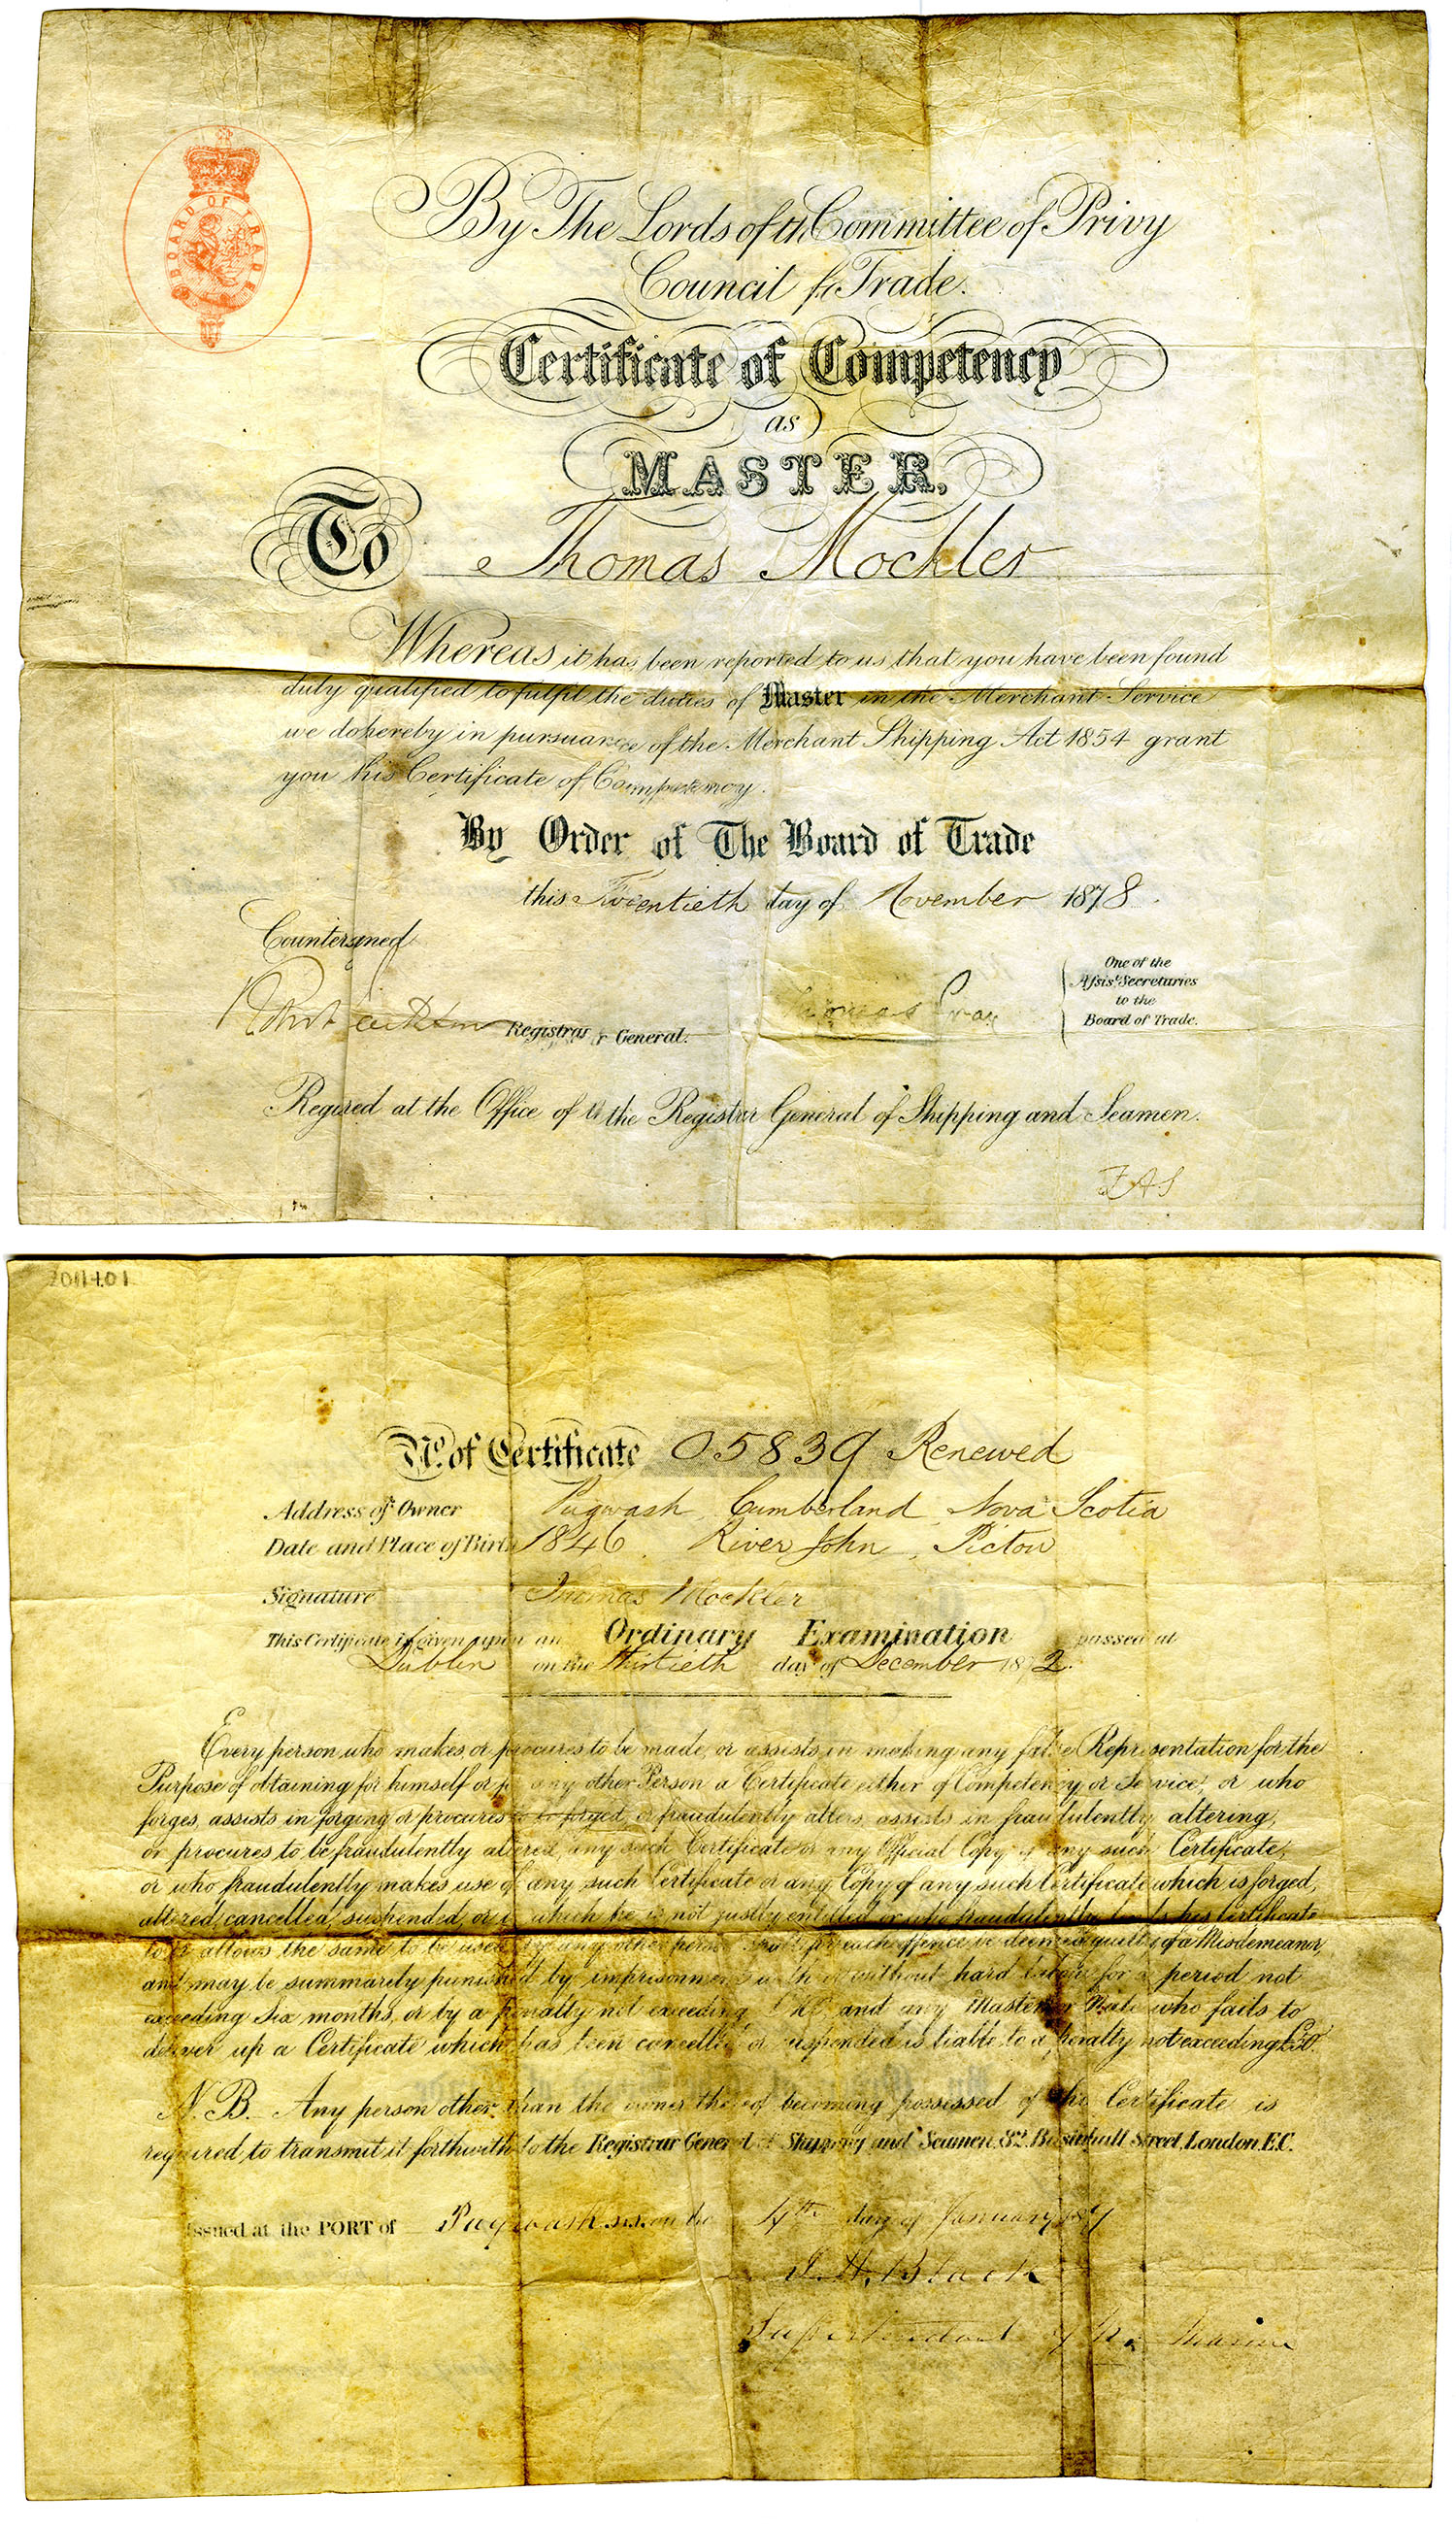 BOARD OF TRADE
By The Lords of th Committee of Privy
Council for Trade.
Certificate of Competency
as
MASTER,
To Thomas Mockler
Whereas it has been reported to us that you have been found
duly qualified to fulfil the duties of Master in the Merchant Service
we do hereby in pursuance of the Merchant Shipping Act 1854 grant
you this Certificate of Competency.
By Order of The Board of Trade
this Twentieth day of November 1878.
Countersigned
Registrar General.
Thomas Gray
One of the
Assist. Secretaries
to the
Board of Trade.
Regisred at the Office of the Registrar General of Shipping and Seamen.
No. of Certificate 05839 Renewed
Address of Owner Pugwash, Cumberland, Nova Scotia
Date and Place of Birth 1846. River John, Pictou
Signature Thomas Mockler
This Certificate is given upon an Ordinary Examination passed at
Dublin on the thirtieth day of December 1872.
Every person who makes, or procures to be made, or assists in making any false Representation for the
Purpose of obtaining for himself or for any other Person a Certificate either of Competency or Service, or who
forges, assists in forging or procures to be forged, or fraudulently alters, assists in fraudulently altering,
or procures to be fraudulently altered, any such Certificate or any Official Copy of any such Certificate,
or who fraudulently makes use of any such Certificate or any Copy of any such Certificate which is forged,
altered, cancelled, suspended, or to which he is not justly entitled or who fraudulently lends his Certificate
to or allows the same to be used by any other person shall for each offence be deemed guilty of a Misdemeanor,
and may be summarily punished by imprisonment with or without hard labour for a period not
exceeding six months, or by a penalty not exceeding and any Master or Mate who fails to
deliver up a Certificate which has been cancelled or suspended is liable to a penalty not exceeding £50.
N.B. Any person other than the owner thereof becoming possessed of this Certificate is
required to transmit it forthwith to the Registrar General of Shipping and Seamen, 82, Basinhall Street, London, E.C.
Issued at the PORT of Pugwash on the 4th day of January 187
Black
Superintendent Marine